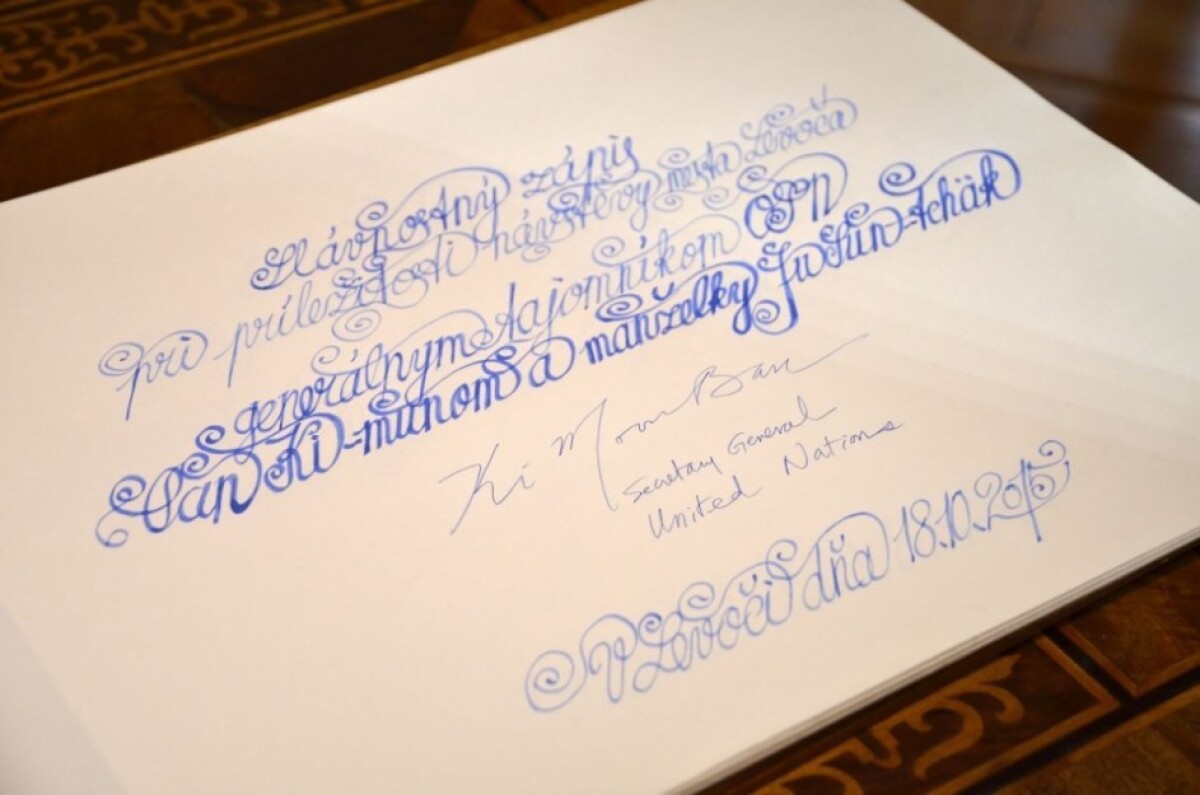 Slávnostný zápis
pri príležitosti návštevy mesta Levoča
generálnym tajomníkom OSN
Pan Ki-munom a manželky Ju Sun-tchäk
Ki Moon Ban
Secretary General
United Nations
V Levoči dňa 18.10.2015